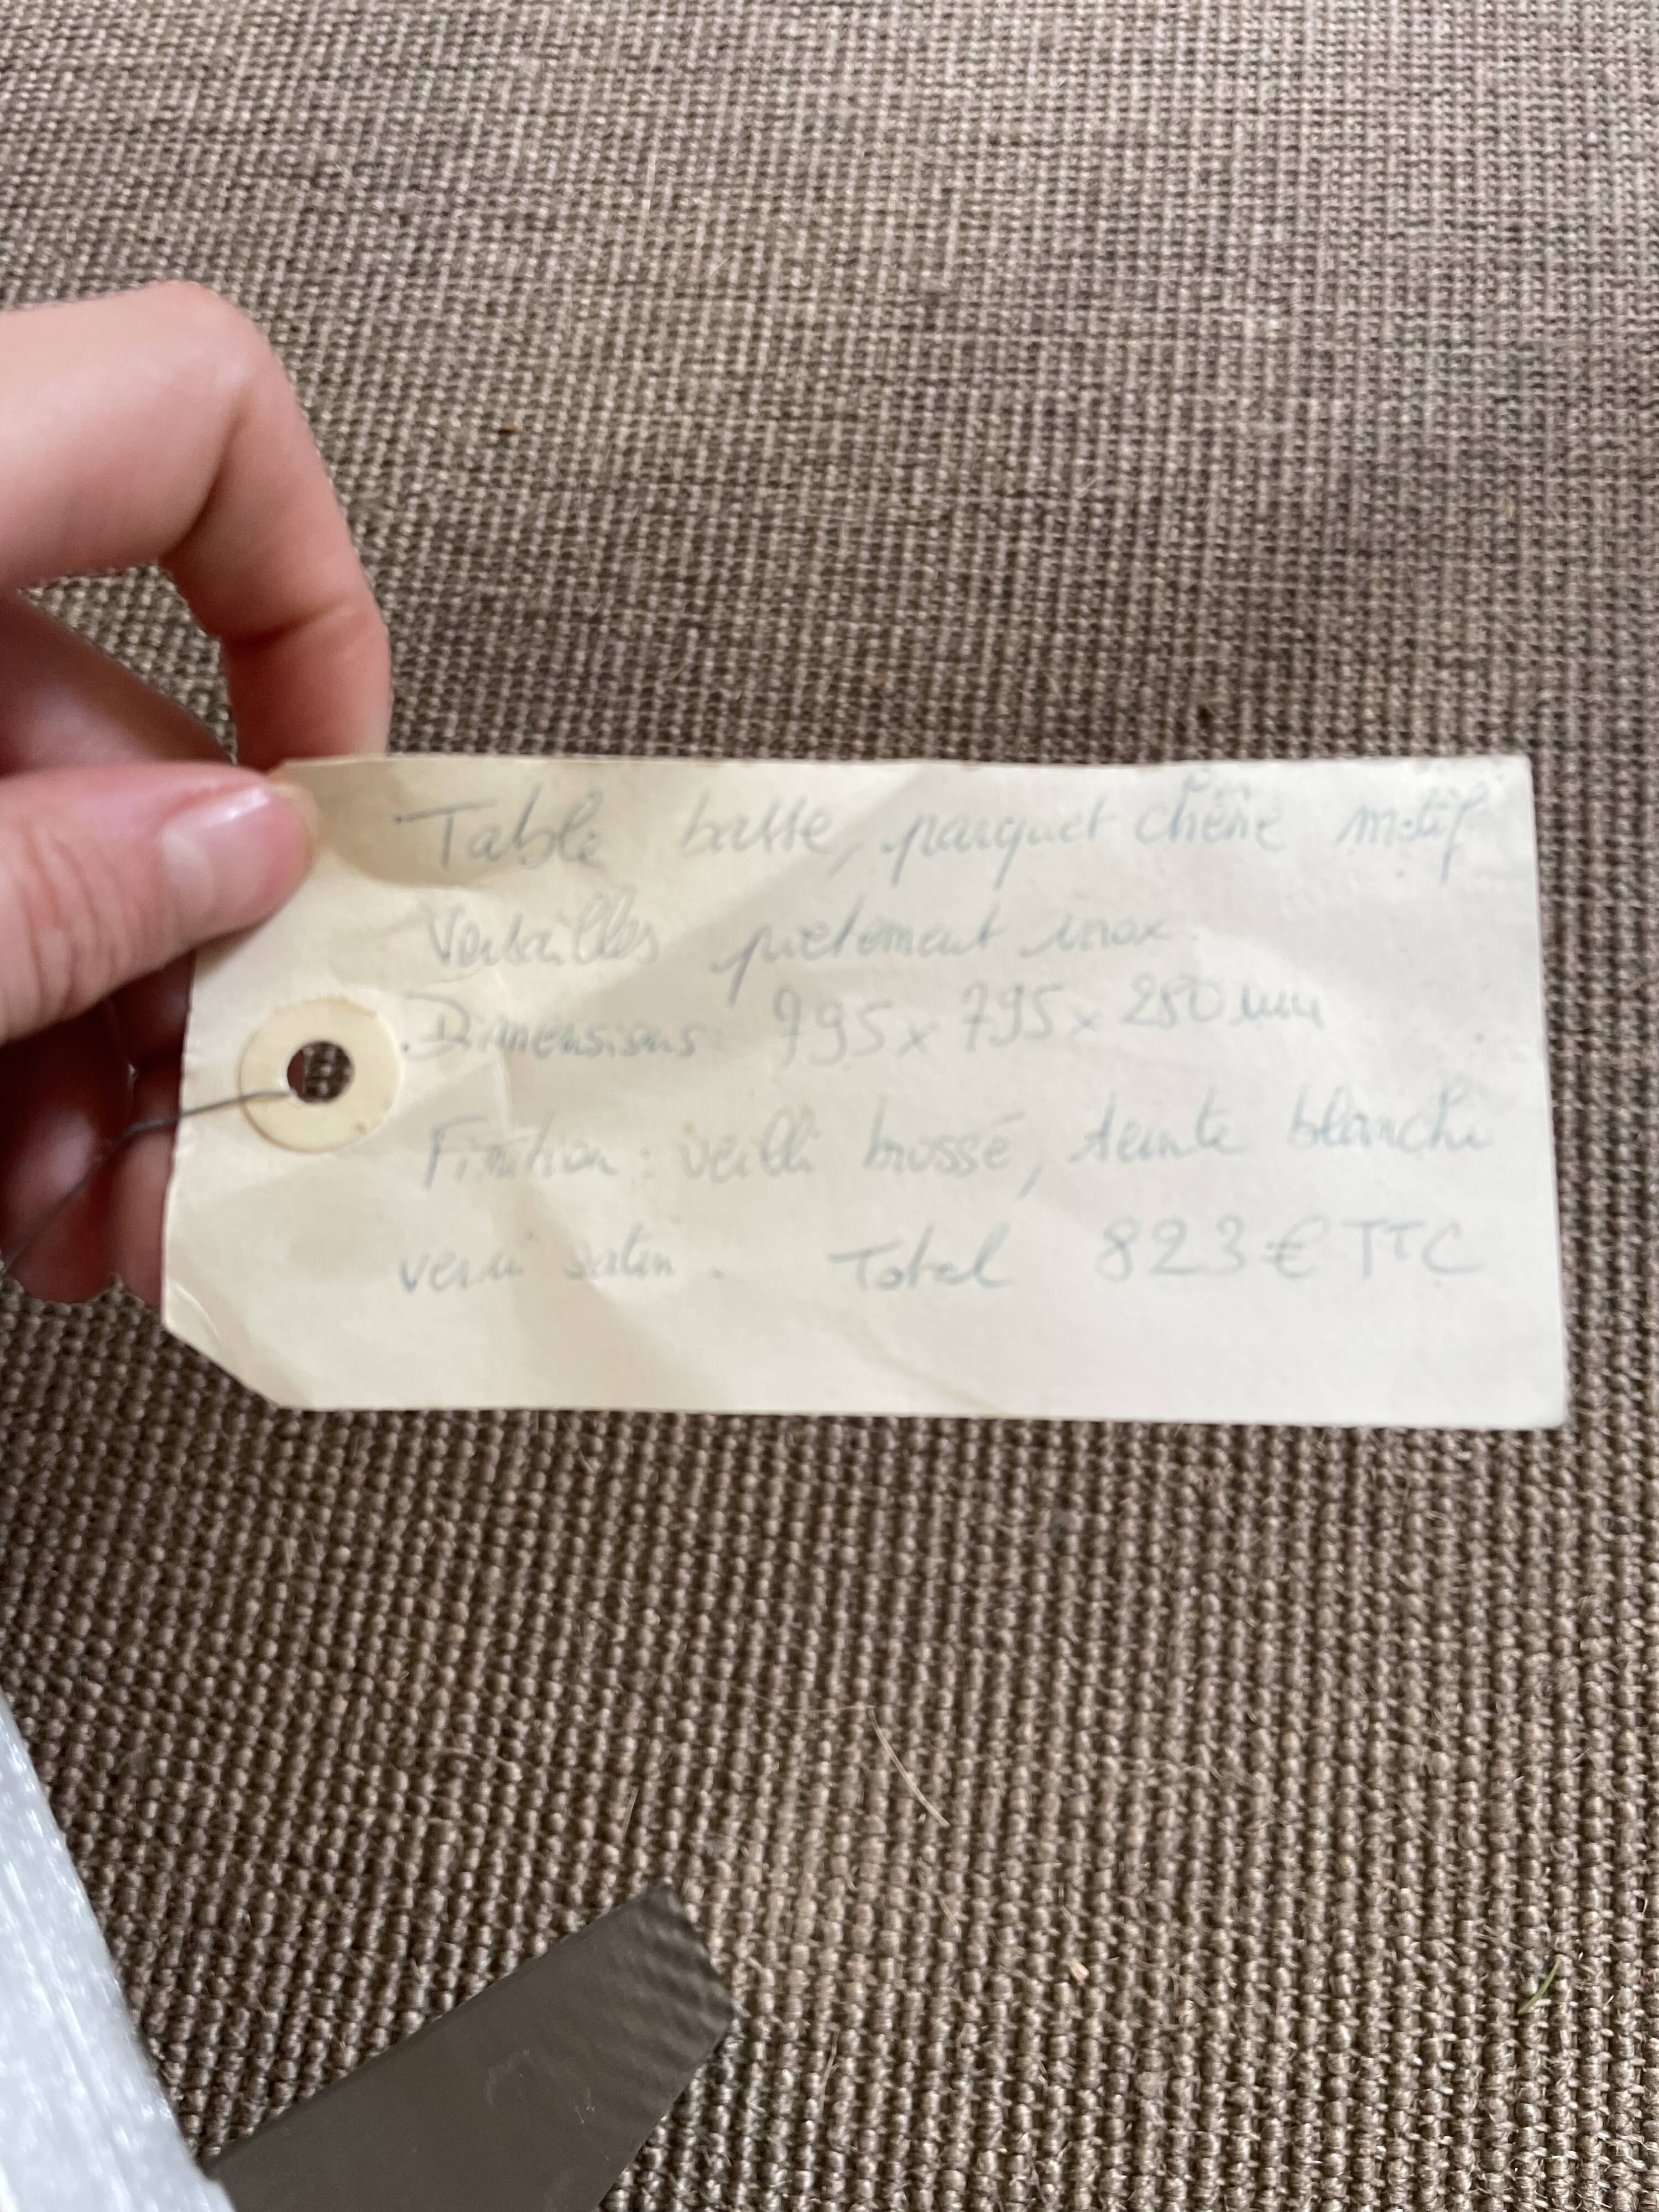 Table basse, parquet chêne motif
Versailles piètement inox
Dimensions 995 x 795 x 280 mm
Finition : veilli brossé, teinte blanche
verni satin. Total 823 € TTC